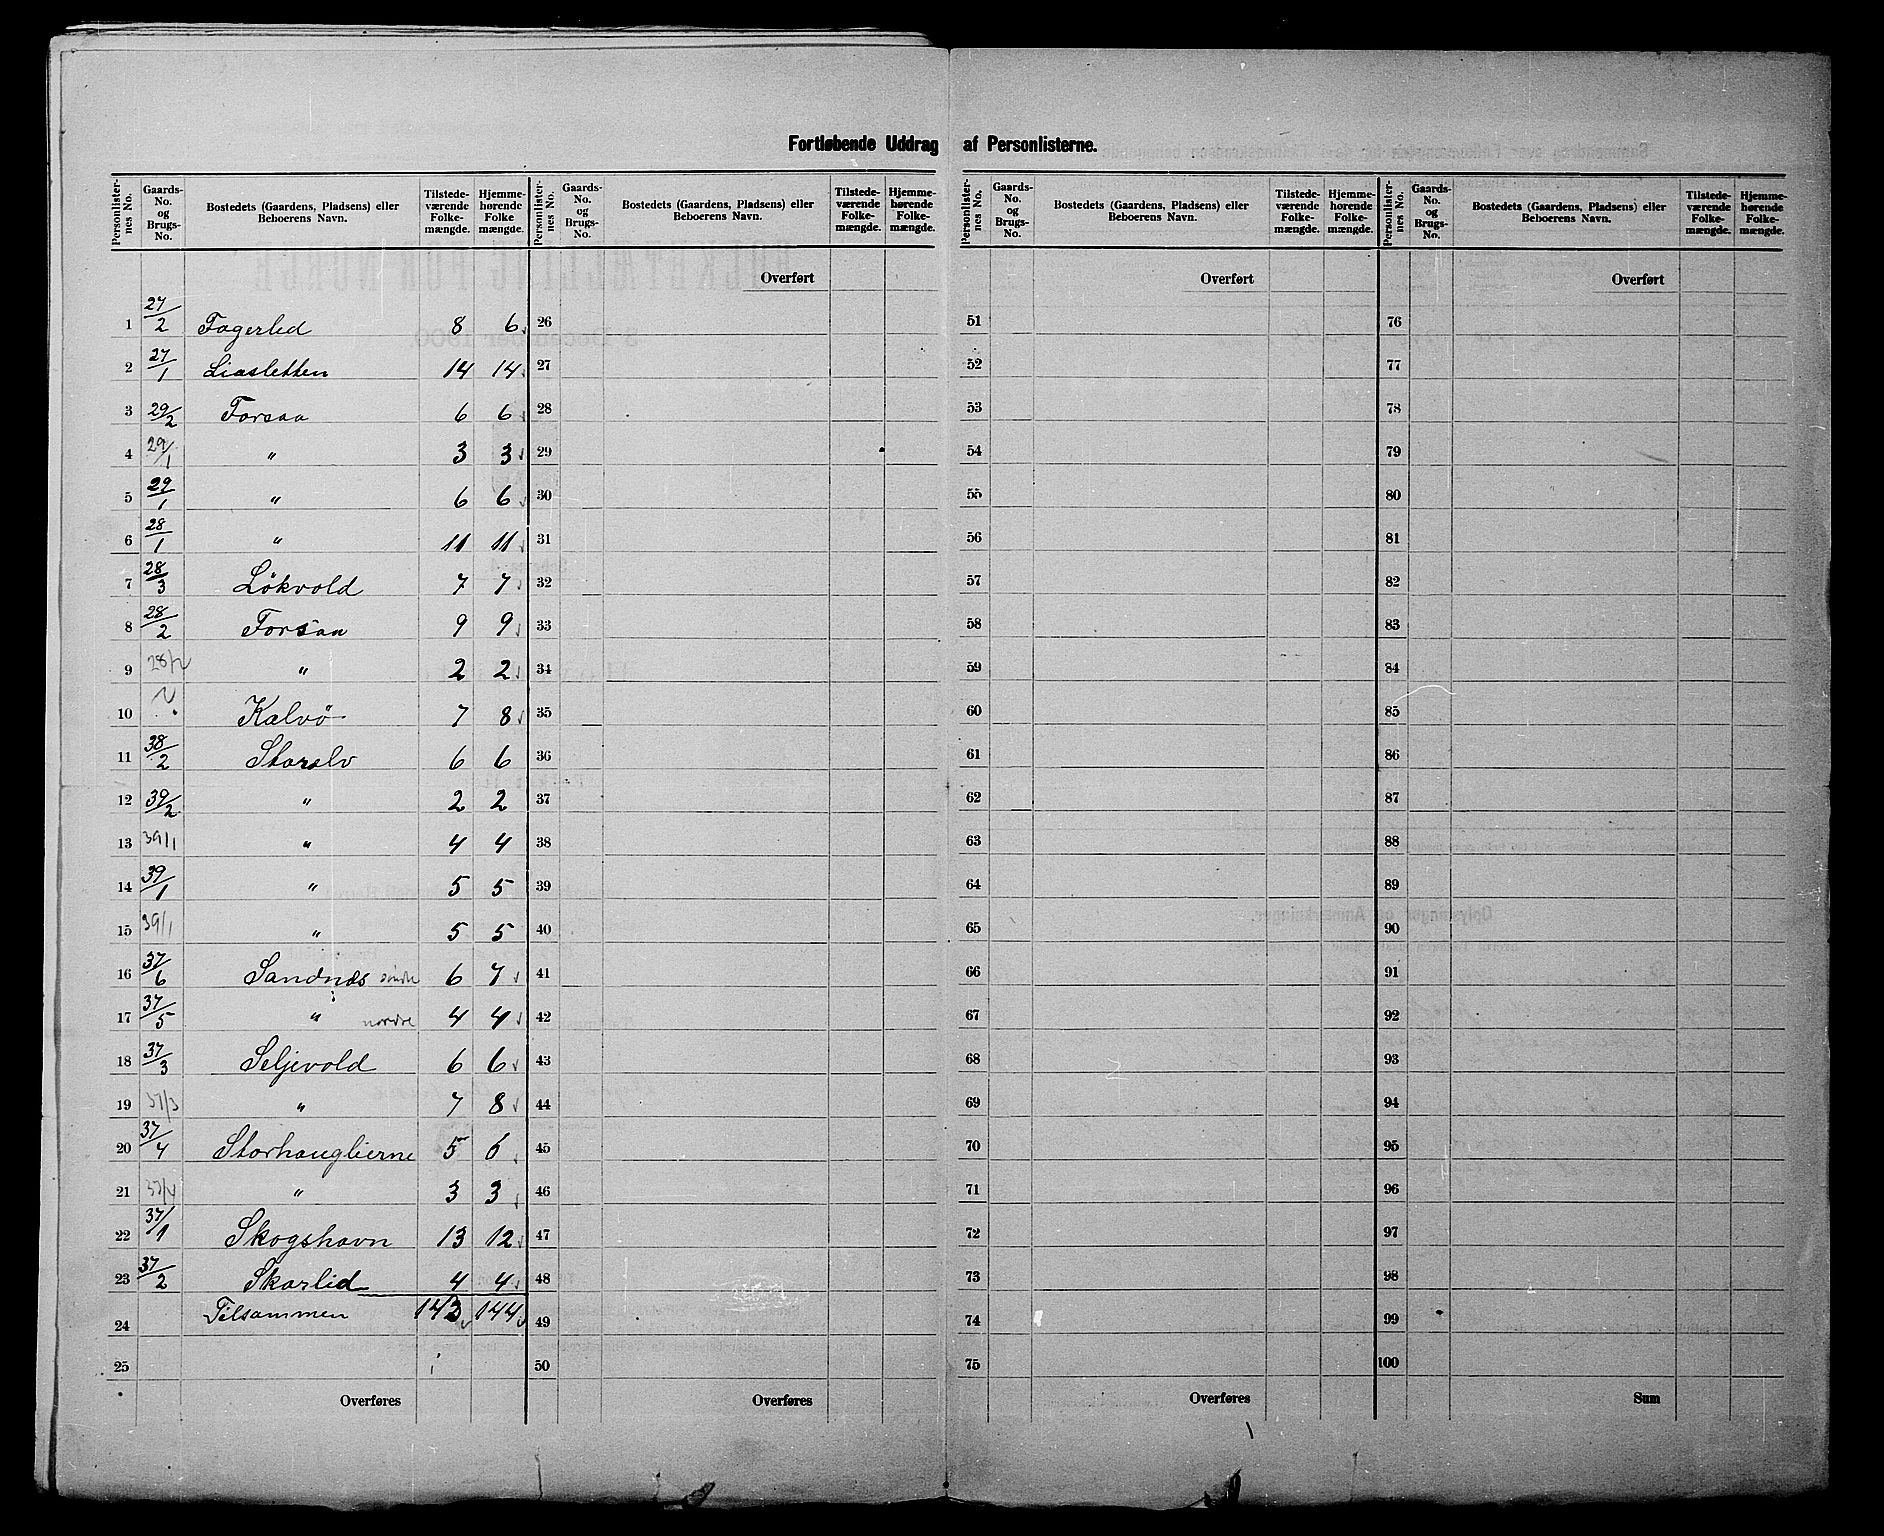 Fortløbende Uddrag af Personlisterne.
Personlister-nes No. Gaards-No. og Brugs-No. Bostedets (Gaardens, Pladsens) eller Beboerens Navn. Tilstede-værende Folke-mængde. Hjemme-hørende Folke mængde.
Personlister-nes No. Gaards-No. og Brugs-No. Bostedets (Gaardens, Pladsens) eller Beboerens Navn. Tilstede-værende Folke-mængde. Hjemme-hørende Folke-mængde.
Personlister-nes No. Gaards-No. og Brugs-No. Bostedets (Gaardens, Pladsens) eller Beboerens Navn. Tilstede-værende Folke-mængde. Hjemme-hørende Folke-mængde.
Personlister-nes No. Gaards-No. og Brugs-No. Bostedets (Gaardens, Pladsens) eller Beboerens Navn. Tilstede-værende Folke-mængde. Hjemme-hørende Folke-mængde.
Overført Overført Overført
1 27/2 Fagerlid 8 6 26 51 76
2 27/1 Liasletten 14 14 27 52 77
3 29/2 Forsaa 6 6 28 53 78
4 29/1 " 3 3 29 54 79
5 29/1 " 6 6 30 55 80
6 28/1 " 11 11 31 56 81
7 28/3 Lökvold 7 7 32 57 82
8 28/2 Forsaa 9 9 33 58 83
9 28/2 " 2 2 34 59 84
10 Kalvö 7 8 35 60 85
11 38/2 Storelv 6 6 36 61 86
12 39/2 " 2 2 37 62 87
13 39/1 " 4 4 38 63 88
14 39/1 " 5 5 39 64 89
15 39/1 " 5 5 40 65 90
16 37/6 Sandnæs søndre 6 7 41 66 91
17 37/5 " nordre 4 4 42 67 92
18 37/3 Seljevold 6 6 43 68 93
19 37/3 " 7 8 44 69 94
20 37/4 Storhauglierne 5 6 45 70 95
21 37/4 " 3 3 46 71 96
22 37/1 Skogshavn 13 12 47 72 97
23 37/2 Skarlid 4 4 48 73 98
24 Tilsammen 143 144 49 74 99
25 50 75 100
Overføres Overføres Overføres Sum